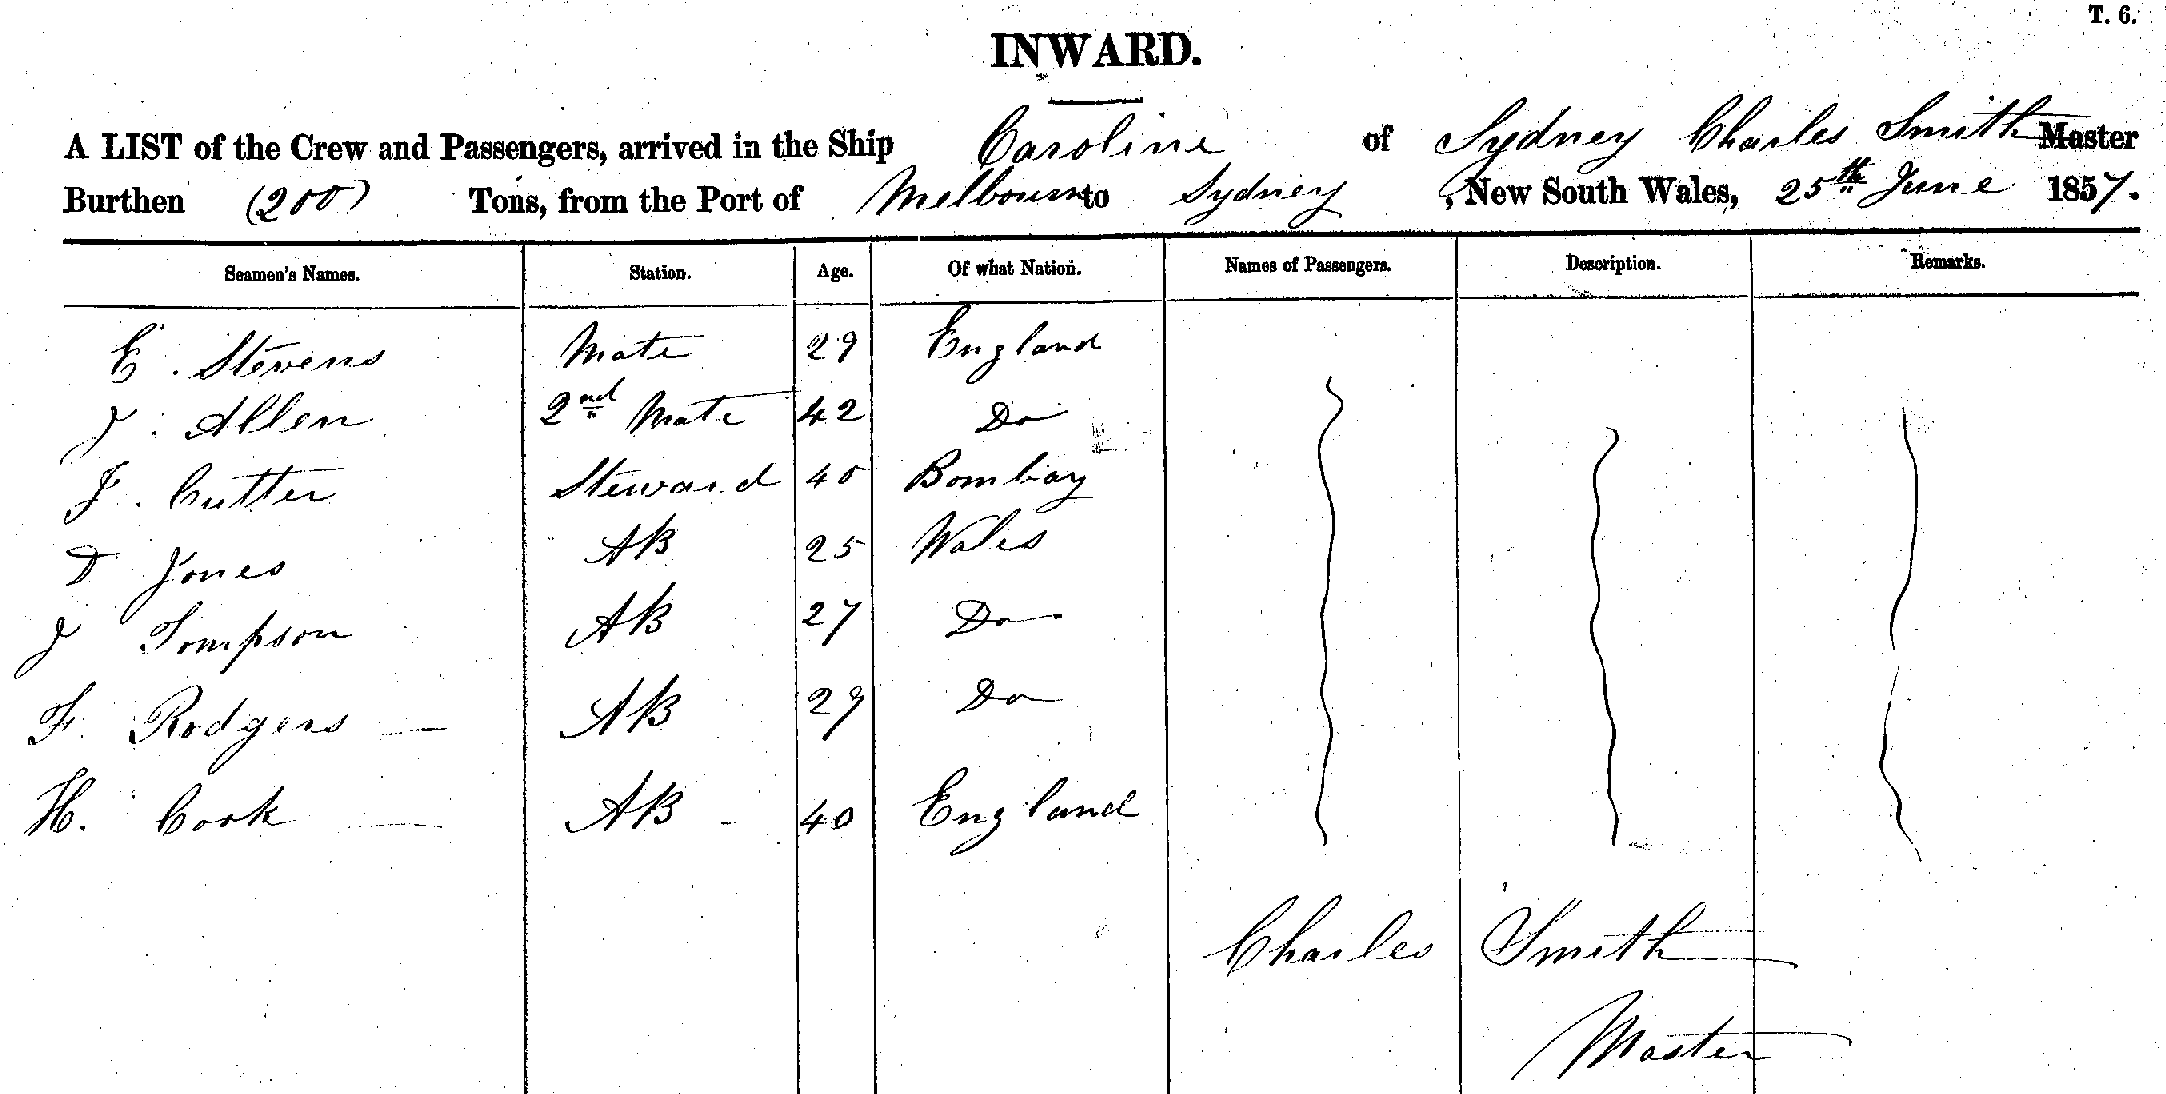 T. 6.
INWARD.
A LIST of the Crew and Passengers, arrived in the Ship Caroline of Sydney Charles Smith Master
Burthen (200) Tons, from the Port of Melbourne to Sydney , New South Wales, 25th June 1857.
Seamen's Names. Station. Age. Of what Nation. Names of Passengers. Description. Remarks.
E. Stevens Mate 29 England
J. Allen 2nd Mate 42 Do
J. Cutter Steward 40 Bombay
D Jones AB 25 Wales
J Tompson AB 27 Do
F. Rodgers — AB 29 Do
H. Cook — AB - 40 England
Charles Smith
Master